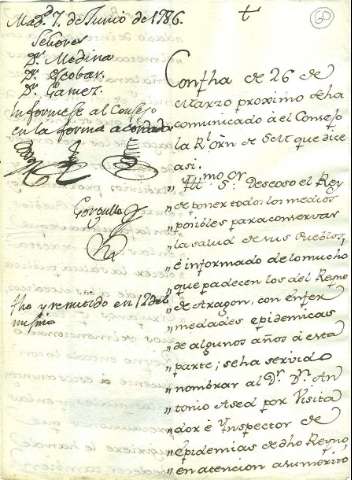 Mad.d 7. de Junio de 1786.
Señores
D.n Medina
D.n Escobar.
D.n Gamez.
Informese al Consejo
en la forma acordada
Gorgullo
fho y remitido en 12 del
mismo
Con fha de 26 de
Marzo proximo se ha
comunicado à el Consejo
la Rl orn de S M que dice
asi.
"Illmo Sr Deseoso el Rey
"de poner todos los medios
"posibles para conservar
"la salud de sus Pueblos,
"è informado de lo mucho
"que padecen los del Reyno
"de Aragon, con enfer
"medades epidemicas
"de algunos años à esta
"parte; se ha servido
"nombrar al Dr. Dn. An
"tonio Ased por Visita
"dor è Ynspector de
"epidemias de dho Reyno,
"en atencion a su merito,